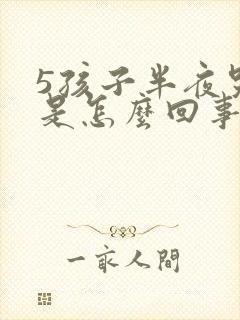 5孩子半夜哭
是怎麼回事
一家人間